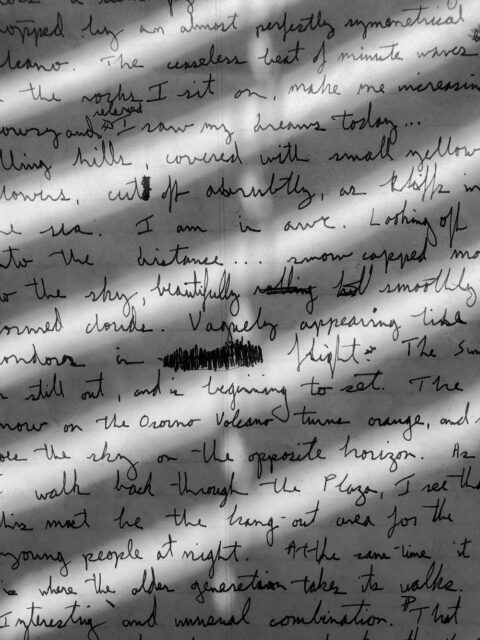 topped by an almost perfectly symmetrical
volcano. The ceaseless beat of minute waves
the rocks I sit on, make me increasin
relaxed
owsy and I saw my dreams today...
lling hills, covered with small yellow
lowers, cut off abruptly, as kliffs in
e sea. I am in awe. Looking off
nto the distance... snow capped mo
the sky, beautifully smoothly
ormed clouds. Vaguely appearing like
ondors in flight. The Sun
still out, and is beginning to set. The
now on the Osorno Volcano turns orange, and
the sky on the opposite horizon. As
I walk back through the Plaza, I see tha
his must be the hang-out area for the
young people at night. At the same-time it
is where the older generation takes its walks.
Interesting and unusual combination. That